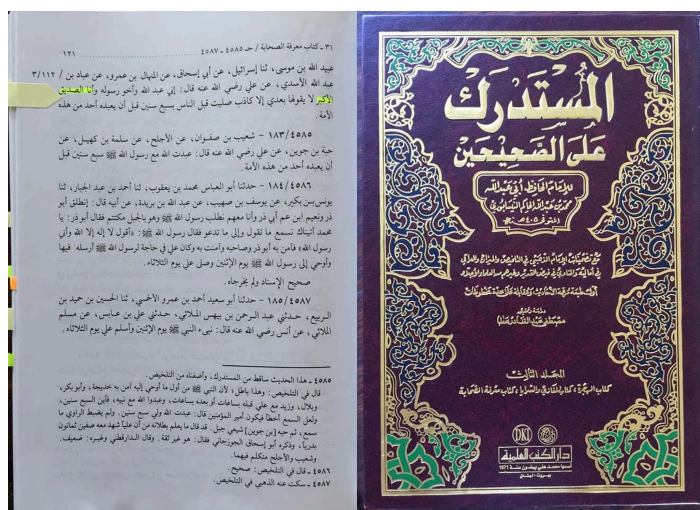 ٣١ - كتاب معرفة الصحابة / حـ ٤٥٨٥ - ٤٥٨٧
١٢١
عبيد الله بن موسى، ثنا إسرائيل، عن أبي إسحاق، عن المنهال بن عمرو، عن عباد بن / ٣/١١٢
عبد الله الأسدي، عن علي رضي الله عنه قال: إني عبد الله وأخو رسوله وأنا الصديق
الأكبر لا يقولها بعدي إلا كاذب صليت قبل الناس بسبع سنين قبل أن يعبده أحد من هذه
الأمة.
١٨٣/٤٥٨٥ - شعيب بن صفوان، عن الأجلح، عن سلمة بن كهيل، عن
حبة بن جوين، عن علي رضي الله عنه قال: عبدت الله مع رسول الله ﷺ سبع سنين قبل
أن يعبده أحد من هذه الأمة.
١٨٤/٤٥٨٦ - حدثنا أبو العباس محمد بن يعقوب، ثنا أحمد بن عبد الجبار، ثنا
يونس بن بكير، عن يوسف بن صهيب، عن عبد الله بن بريدة، عن أبيه قال: إنطلق أبو
ذر ونعيم ابن عم أبي ذر وأنا معهم نطلب رسول الله ﷺ وهو بالجبل مكتتم فقال أبو ذر: يا
محمد أتيناك نسمع ما تقول وإلى ما تدعو فقال رسول الله ﷺ: «أقول لا إله إلا الله وأني
رسول الله» فآمن به أبو ذر وصاحبه وآمنت به وكان علي في حاجة لرسول الله ﷺ أرسله فيها
وأوحي إلى رسول الله ﷺ يوم الإثنين وصلى علي يوم الثلاثاء.
صحيح الإسناد ولم يخرجاه.
١٨٥/٤٥٨٧ - حدثنا أبو سعيد أحمد بن عمرو الأخمسي، ثنا الحسين بن حميد بن
الربيع، حدثني عبد الرحمن بن بيهس الملائي، حدثني علي بن عابس، عن مسلم
الملائي، عن أنس رضي الله عنه قال: نبىء النبي ﷺ يوم الإثنين وأسلم علي يوم الثلاثاء.
٤٥٨٥ - هذا الحديث ساقط من المستدرك، وأضفناه من التلخيص.
قال في التلخيص: وهذا باطل؛ لأن النبي ﷺ من أول ما أوحي إليه آمن به خديجة، وأبو بكر،
وبلال، وزيد مع علي قبله بساعات أو بعده بساعات، وعبدوا الله مع نبيه، فأين السبع سنين،
ولعل السمع أخطأ فيكون أمير المؤمنين قال: عبدت الله ولي سبع سنين. ولم يضبط الراوي ما
سمع، ثم حبه [بن جوين] شيعي جبل. قد قال ما يعلم بطلانه من أن علياً شهد معه صفين ثمانون
بدرياً، وذكره أبو إسحاق الجوزجاني فقال: هو غير ثقة. وقال الدارقطني وغيره: ضعيف.
وشعيب والأجلح متكلم فيهما.
٤٥٨٦ - قال في التلخيص: صحيح.
٤٥٨٧ - سكت عنه الذهبي في التلخيص.
المستدرك
على الصحيحين
للإمام الحافظ أبي عبد الله
محمد بن عبد الله الحاكم النيسابوري
المتوفى ٤٠٥ هـ
مع تضمينات الإمام الذهبي في التلخيص والميزان والعراقي
في أماليه والمناوي في فيض القدير وغيرهم من العلماء الأجلاء
دراسة وتحقيق
مصطفى عبد القادر عطا
المجلد الثالث
كتاب الهجرة، كتاب المغازي والسرايا، كتاب معرفة الصحابة
DKi
دار الكتب العلمية
أسسها محمد علي بيضون سنة 1971
بيروت - لبنان